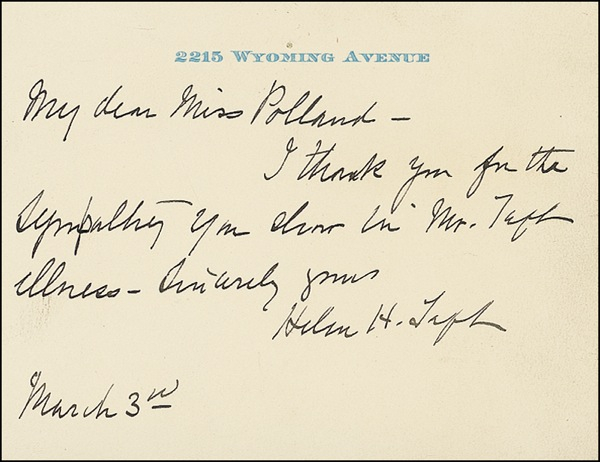 2215 WYOMING AVENUE
My dear Miss Polland –
I thank you for the
sympathy you show in Mr. Taft
illness – Sincerely yours
Helen H. Taft
March 3rd